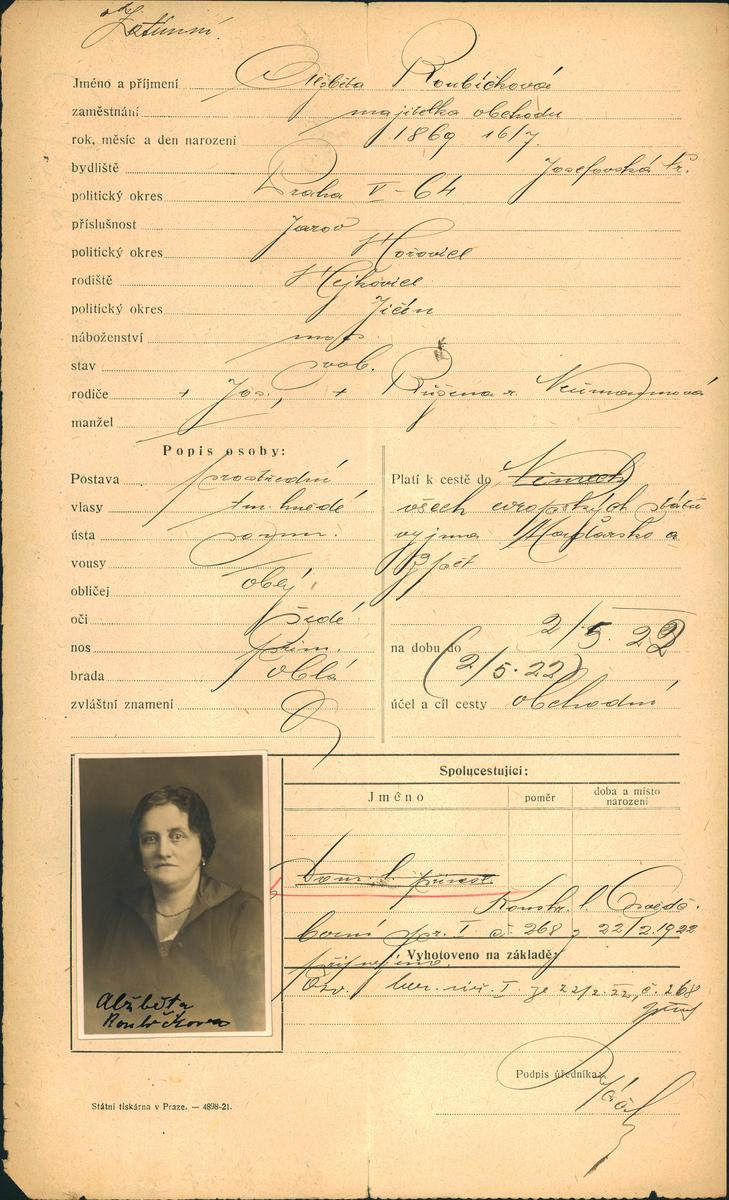 Jméno a příjmení Alžběta Roubíčková
zaměstnání majitelka obchodu
rok, měsíc a den narození 1869 16/7.
bydliště Josefovská tř.
politický okres Praha V - 64
příslušnost Jarov
politický okres Hořovice
rodiště
politický okres Jičín
náboženství
stav svob.
rodiče + Jos., + Růžena r. Neumannová
manžel
Popis osoby:
Postava prostřední
vlasy tm. hnědé
ústa
vousy
obličej obej
oči šedé
nos přim.
brada oblá
zvláštní znamení
Platí k cestě do
všech evropských států
vyjma Maďarsko a
zpět
2/5. 23
na dobu do
(2/5. 22)
účel a cíl cesty obchodní
Spolucestující:
Jméno poměr doba a místo narození
Dom. l.
Konskr. l. Osvěd.
čení pr. I č. 268 z 22/2. 1922
Vyhotoveno na základě:
Osv. I. ze 22/2. 22, č. 268
Alžběta
Roubíčkova
Podpis úředníka:
Státní tiskárna v Praze. — 4898-21.